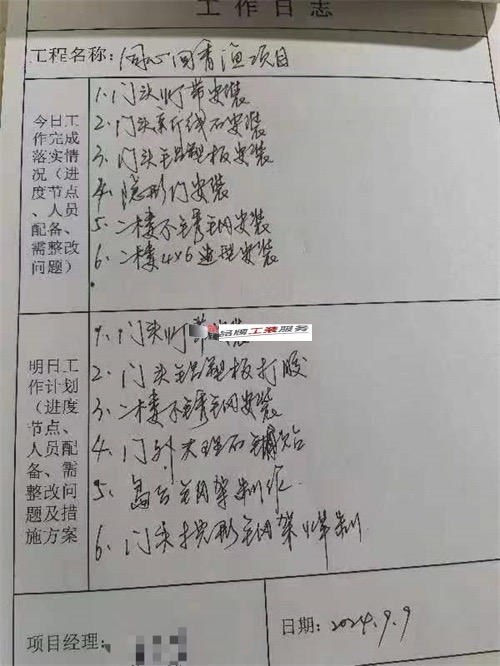 工作日志
工程名称：同心回香渔项目
今日工作完成落实情况（进度节点、人员配备、需整改问题）
1、门头灯带安装
2、门头亲行线石安装
3、门头铝塑板安装
4、隐形门安装
5、二楼不锈钢安装
6、二楼4×6造型安装
品牌工装服务
明日工作计划（进度节点、人员配备、需整改问题及措施方案
1、门头灯带安装
2、门头铝塑板打胶
3、二楼不锈钢安装
4、门外大理石铺贴
5、岛台钢架制作
6、门头拱形钢架焊制
项目经理：
日期：2024.9.9